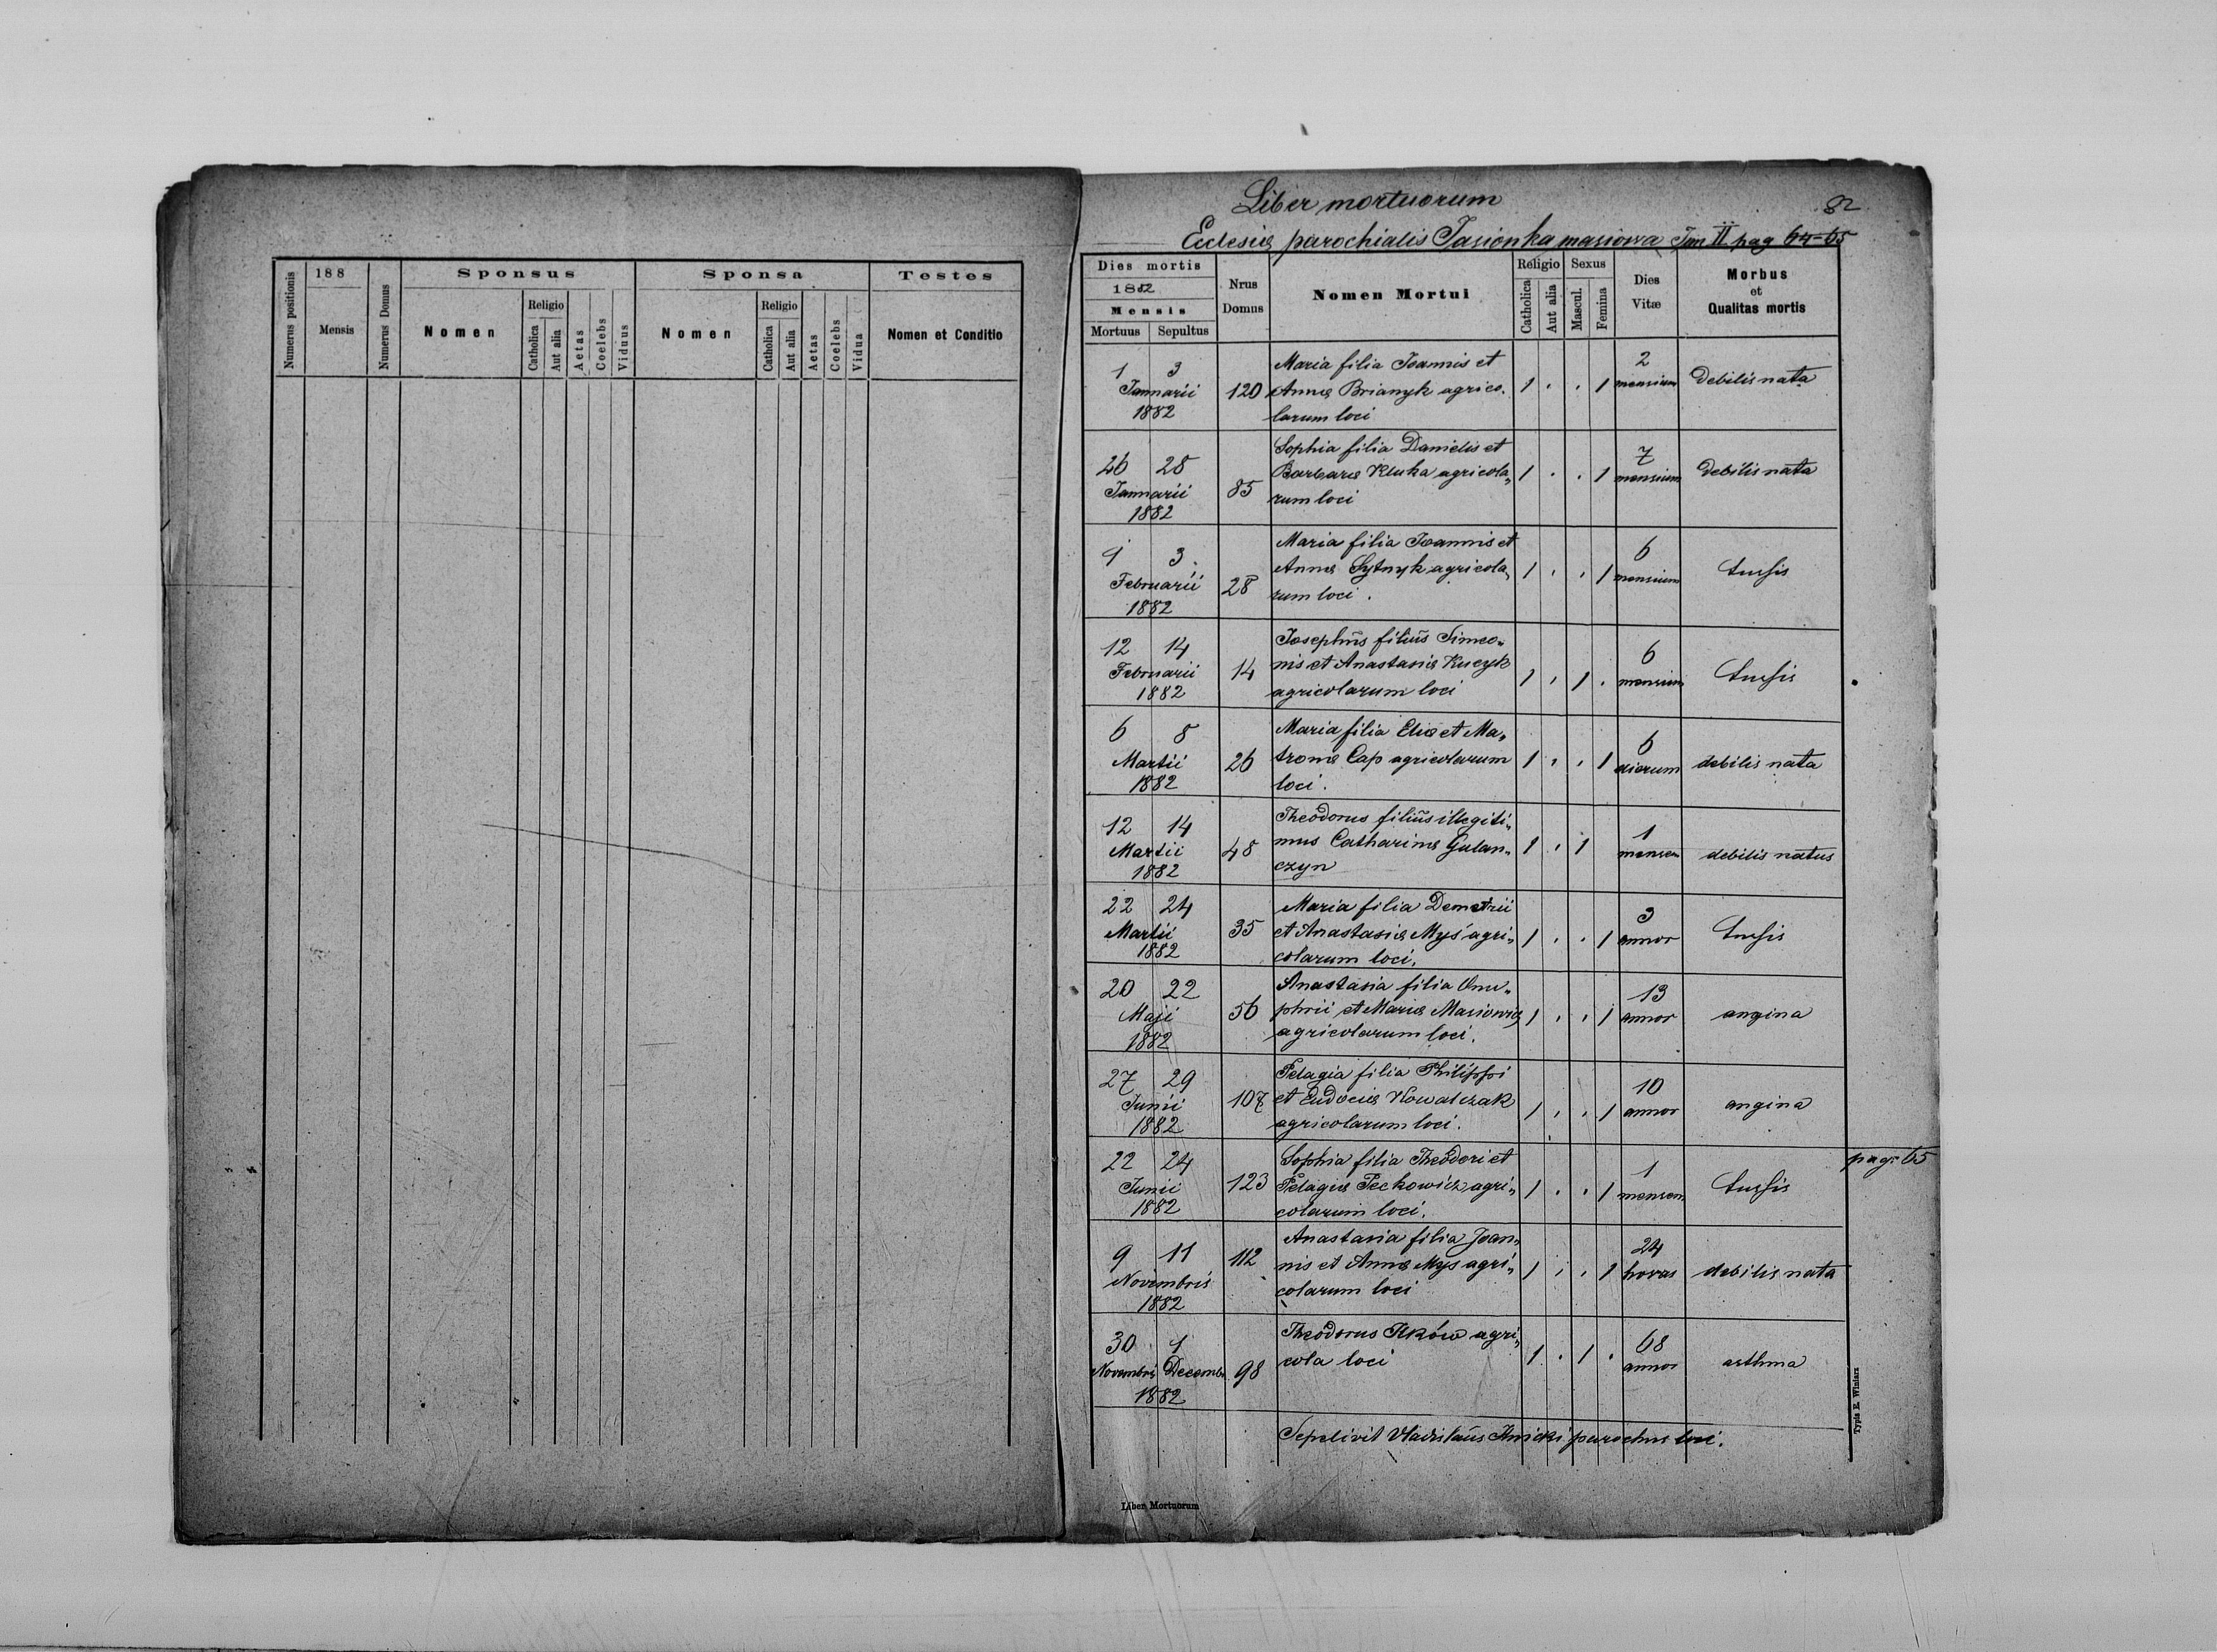 Numerus positionis
188
Mensis
Numerus Domus
Sponsus
Nomen
Religio
Catholica
Aut alia
Aetas
Coelebs
Vidus
Sponsa
Nomen
Religio
Catholica
Aut alia
Aetas
Coelebs
Vidua
Testes
Nomen et Conditio
Liber mortuorum
82
Ecclesiæ parochialis Jasionka masiowa Tom II pag 64-65
Dies mortis
1882
Mensis
Mortuus Sepultus
Nrus
Domus
Nomen Mortui
Religio
Catholica
Aut alia
Sexus
Mascul.
Femina
Dies
Vitæ
Morbus
et
Qualitas mortis
1 3
Januarii
1882
120
Maria filia Joannis et
Annæ Brianyk agrico-
larum loci
1 . . 1
2
mensium
Debilis nata
26 28
Januarii
1882
85
Sophia filia Danielis et
Barbaræ Kluka agricola„
rum loci
1 . . 1
7
mensium
Debilis nata
1 3.
Februarii
1882
28
Maria filia Joannis et
Annæ Sytnyk agricola„
rum loci.
1 . . 1
6
mensium
tussis
12 14
Februarii
1882
14
Josephus filius Simeo„
nis et Anastasiæ Kuczyk
agricolarum loci
1 . 1 .
6
mensium
tussis
6 8
Martii
1882
26
Maria filia Eliæ et Ma„
tronæ Cap agricolarum
loci.
1 . . 1
6
dierum
debilis nata
12 14
Martii
1882
48
Theodorus filius illegiti„
mus Catharinæ Gulan„
czyn
1 . 1
1
mensem
debilis natus
22 24
Martii
1882
35
Maria filia Demetrii
et Anastasiæ Myś agri„
colarum loci.
1 . . 1
3
annor
tussis
20 22
Maji
1882
56
Anastasia filia Onu„
phrii et Mariæ Masiowicz
agricolarum loci.
1 . . 1
13
annor
angina
27 29
Junii
1882
107
Pelagia filia Philippi
et Eudociæ Kowalczak
agricolarum loci.
1 . . 1
10
annor
angina
22 24
Junii
1882
123
Sophia filia Theodori et
Pelagiæ Peckowicz agri„
colarum loci.
1 . . 1
1
mensem
tussis
pag: 65
9 11
Novembris
1882
112
Anastasia filia Joan„
nis et Annæ Mys agri„
colarum loci
1 . . 1
24
horas
debilis nata
30 1
Novembris Decemb.
1882
98
Theodorus Ilków agri„
cola loci
1 . 1 .
68
annor
asthma
Sepelivit Vladislaus Ilnicki parochus loci.
Liber Mortuorum
Typis E. Winiarz